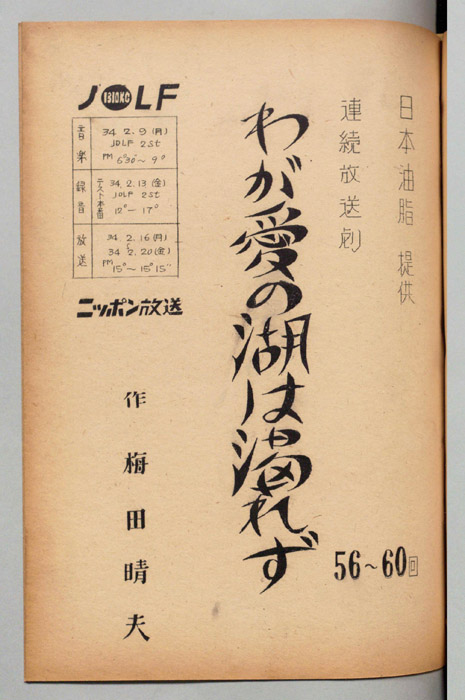 日本油脂 提供
連続放送劇
わが愛の湖は涸れず
56〜60回
JOLF
1310KC
音楽
34 2.9(月)
JOLF 2St
PM 6°30′〜9°
録音
テスト本番
34.2.13(金)
JOLF 2St
12°〜17°
放送
34.2.16(月)
〜
34 2.20(金)
PM 15°〜15°15″
ニッポン放送
作 梅田晴夫